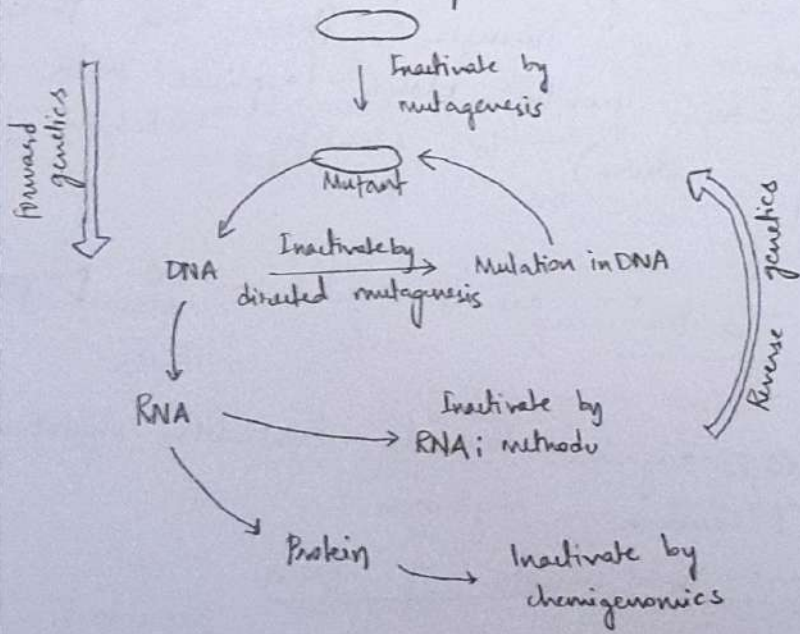 Inactivate by
mutagenesis
Forward
genetics
Mutant
DNA
Inactivate by
directed mutagenesis
Mutation in DNA
Reverse genetics
RNA
Inactivate by
RNAi methods
Protein
Inactivate by
chemigenomics